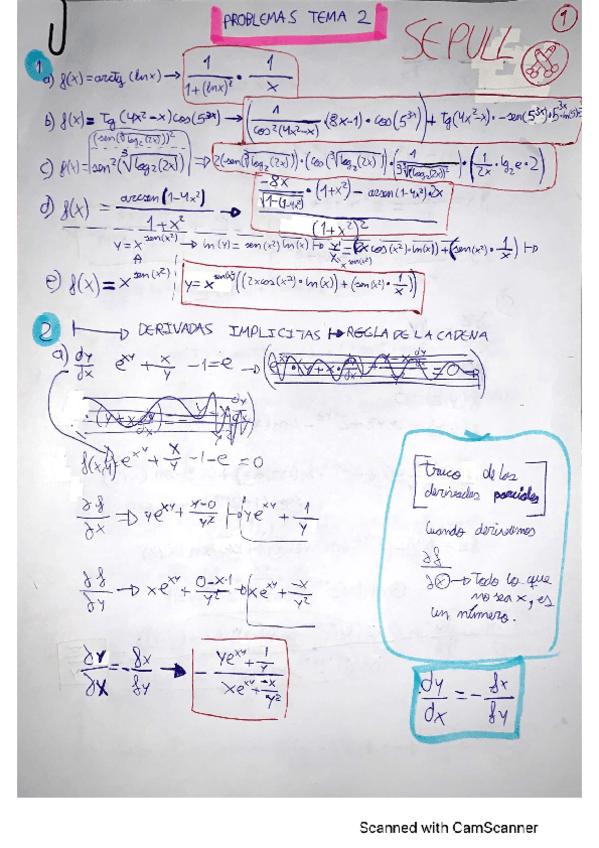 PROBLEMAS TEMA 2
SEPULL
1
1
a) f(x) = arctg (lnx) → 1/(1+(lnx)²) · 1/x
b) f(x) = Tg(4x²-x) cos(5³ˣ) → (1/cos²(4x²-x) · (8x-1) · cos(5³ˣ)) + tg(4x²-x) · -sen(5³ˣ) · 5³ˣ
(sen(∛log₂(2x)))²
c) f(x) = sen²(∛log₂(2x)) ⇒ 2(sen(∛log₂(2x))) · (cos(∛log₂(2x))) · · (1/2x · lg₂e · 2)
d) f(x) = arcsen(1-4x²)/(1+x²) → (-8x/√1-(1-4x²) · (1+x²) - arcsen(1-4x²) · 2x)/(1+x²)²
y = x^sen(x²) → ln(y) = sen(x²) ln(x) ↦ = (2x cos(x²) · ln(x)) + (sen(x²) · 1/x) ↦
e) f(x) = x^sen(x²) y = x^sen(x²) ((2xcos(x²) · ln(x)) + (sen(x²) · 1/x))
2 ↦ DERIVADAS IMPLICITAS ↦ REGLA DE LA CADENA
a) dy/dx e^xy + x/y - 1 = e →
f(x,y) = e^xy + x/y - 1 - e = 0
∂f/∂x ⇒ ye^xy + y-0/y² ↦ ye^xy + 1/y
∂f/∂y → xe^xy + 0-x·1/y² → xe^xy + -x/y²
∂y/∂x = - fx/fy → - (ye^xy + 1/y)/(xe^xy + -x/y²)
truco de las
derivadas parciales
Cuando derivemos
∂f
∂x → Todo lo que
no sea x, es
un número.
dy/dx = - fx/fy
Scanned with CamScanner